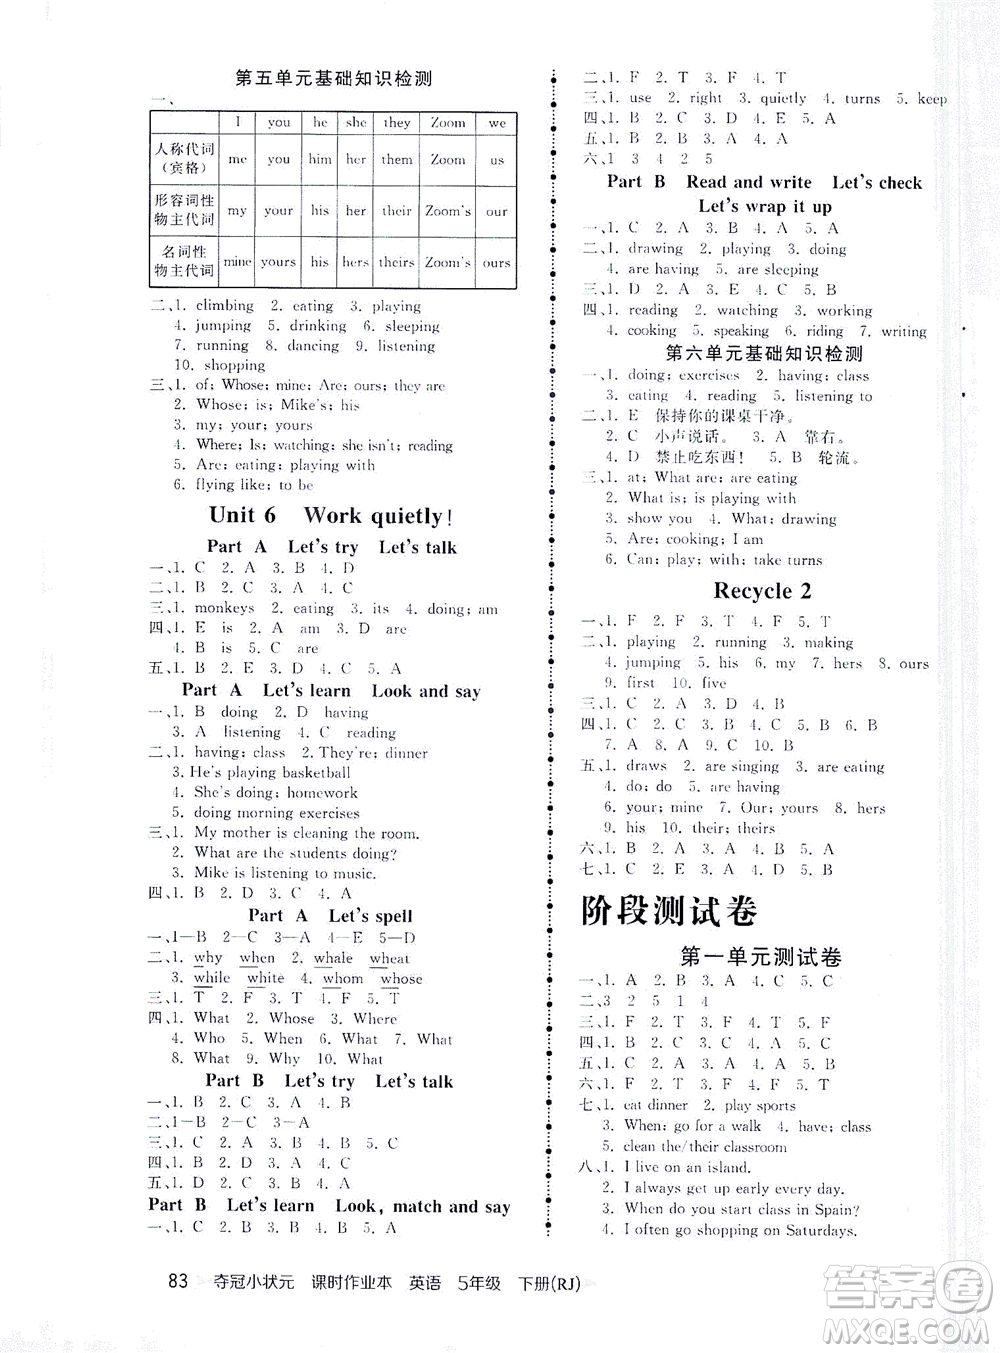 第五单元基础知识检测
一、
I you he she they Zoom we
人称代词(宾格) me you him her them Zoom us
形容词性物主代词 my your his her their Zoom's our
名词性物主代词 mine yours his hers theirs Zoom's ours
二、1. climbing 2. eating 3. playing
4. jumping 5. drinking 6. sleeping
7. running 8. dancing 9. listening
10. shopping
三、1. of; Whose; mine; Are; ours; they are
2. Whose; is; Mike's; his
3. my; your; yours
4. Where; Is; watching; she isn't; reading
5. Are; eating; playing with
6. flying like; to be
Unit 6 Work quietly!
Part A Let's try Let's talk
一、1. C 2. A 3. B 4. D
二、1. B 2. C 3. A 4. D
三、1. monkeys 2. eating 3. its 4. doing; am
四、1. E is 2. A am 3. D are
4. B is 5. C are
五、1. B 2. E 3. D 4. C 5. A
Part A Let's learn Look and say
一、1. B doing 2. D having
3. A listening 4. C reading
二、1. having; class 2. They're; dinner
3. He's playing basketball
4. She's doing; homework
5. doing morning exercises
三、1. My mother is cleaning the room.
2. What are the students doing?
3. Mike is listening to music.
四、1. B 2. D 3. C 4. A
Part A Let's spell
一、1—B 2—C 3—A 4—E 5—D
二、1. why when 2. whale wheat
3. while white 4. whom whose
三、1. T 2. F 3. T 4. F 5. T
四、1. What 2. Whose 3. Where
4. Who 5. When 6. What 7. Who
8. What 9. Why 10. What
Part B Let's try Let's talk
一、1. B 2. C 3. A 4. B
二、1—B 2—C 3—A
三、1. C 2. A 3. B 4. C 5. A
四、1. B 2. C 3. B 4. A 5. A
五、1. D 2. A 3. B 4. C
Part B Let's learn Look, match and say
一、1. C 2. A 3. B 4. B 5. A
83 夺冠小状元 课时作业本 英语 5年级 下册(RJ)
二、1. F 2. T 3. F 4. T
三、1. use 2. right 3. quietly 4. turns 5. keep
四、1. B 2. C 3. D 4. E 5. A
五、1. B 2. C 3. A 4. B
六、1 3 4 2 5
Part B Read and write Let's check
Let's wrap it up
一、1. C 2. A 3. B 4. B 5. A
二、1. drawing 2. playing 3. doing
4. are having 5. are sleeping
三、1. D 2. A 3. B 4. C
四、1. reading 2. watching 3. working
4. cooking 5. speaking 6. riding 7. writing
第六单元基础知识检测
一、1. doing; exercises 2. having; class
3. eating 4. reading 5. listening to
二、1. E 保持你的课桌干净。
2. C 小声说话。 3. A 靠右。
4. D 禁止吃东西! 5. B 轮流。
三、1. at; What are; are eating
2. What is; is playing with
3. show you 4. What; drawing
5. Are; cooking; I am
6. Can; play; with; take turns
Recycle 2
一、1. F 2. F 3. T 4. F 5. T
二、1. playing 2. running 3. making
4. jumping 5. his 6. my 7. hers 8. ours
9. first 10. five
三、1. C 2. A 3. B 4. D
四、1. C 2. C 3. B 4. C 5. B 6. B
7. A 8. A 9. C 10. B
五、1. draws 2. are singing 3. are
4. do; do 5. are having
6. your; mine 7. Our; yours 8. hers
9. his 10. their; theirs
六、1. B 2. A 3. A 4. C 5. B
七、1. C 2. E 3. A 4. D 5. B
阶段测试卷
第一单元测试卷
一、1. A 2. B 3. A 4. C 5. C
二、3 2 5 1 4
三、1. F 2. T 3. T 4. T 5. F
四、1. B 2. C 3. A 4. C 5. B
五、1. C 2. A 3. A 4. C 5. B
六、1. F 2. T 3. F 4. F 5. T
七、1. eat dinner 2. play sports
3. When; go for a walk 4. have; class
5. clean the/their classroom
八、1. I live on an island.
2. I always get up early every day.
3. When do you start class in Spain?
4. I often go shopping on Saturdays.
答案圈
MXQE.COM